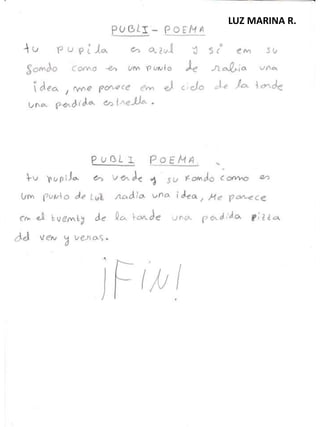 LUZ MARINA R.
PUBLI-POEMA
tu pupila es azul y si em su
fomdo como es um pumto de rabia una
idea, me parece em el cielo de la tarde
una perdida estrella.
PUBLI POEMA
tu pupila es verde y su fomdo como es
um pumto de luz radia una idea, Me parece
em el tuemty de la tarde una perdida pizza
del ven y veras.
¡FiN!